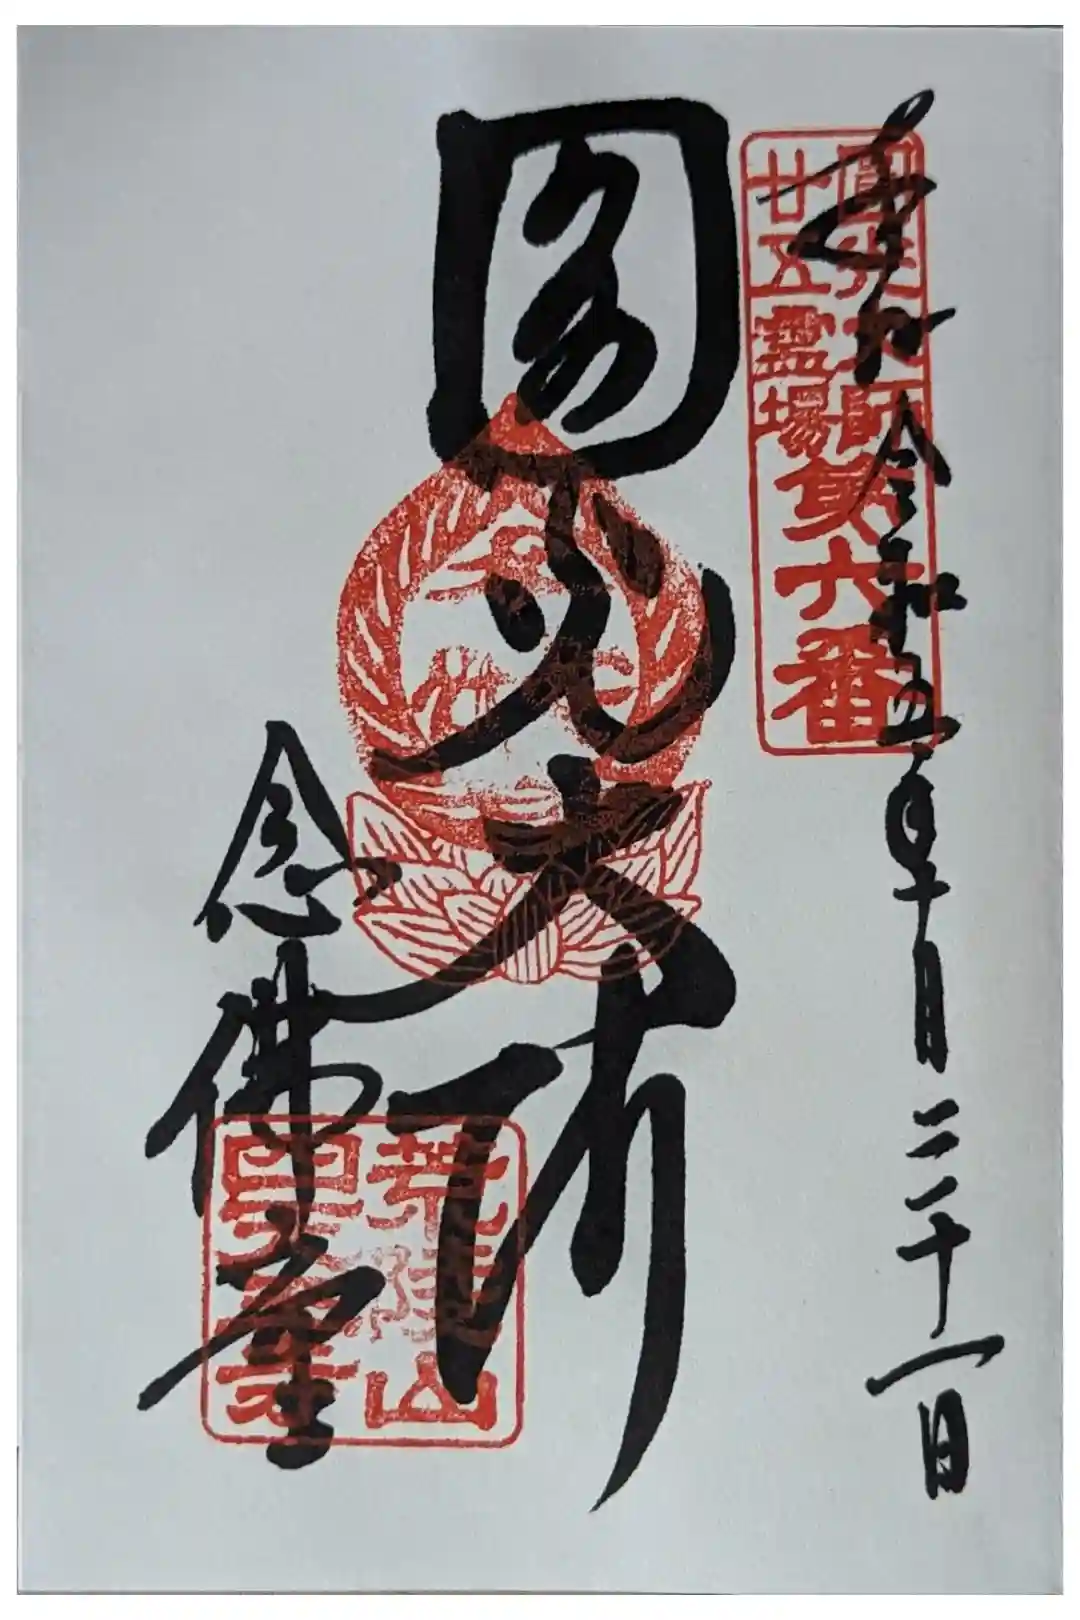 奉拝 令和五年十月二十一日
圓光大師
廿五霊場
第六番
圓光大師
念佛堂
荒陵山
四天王寺